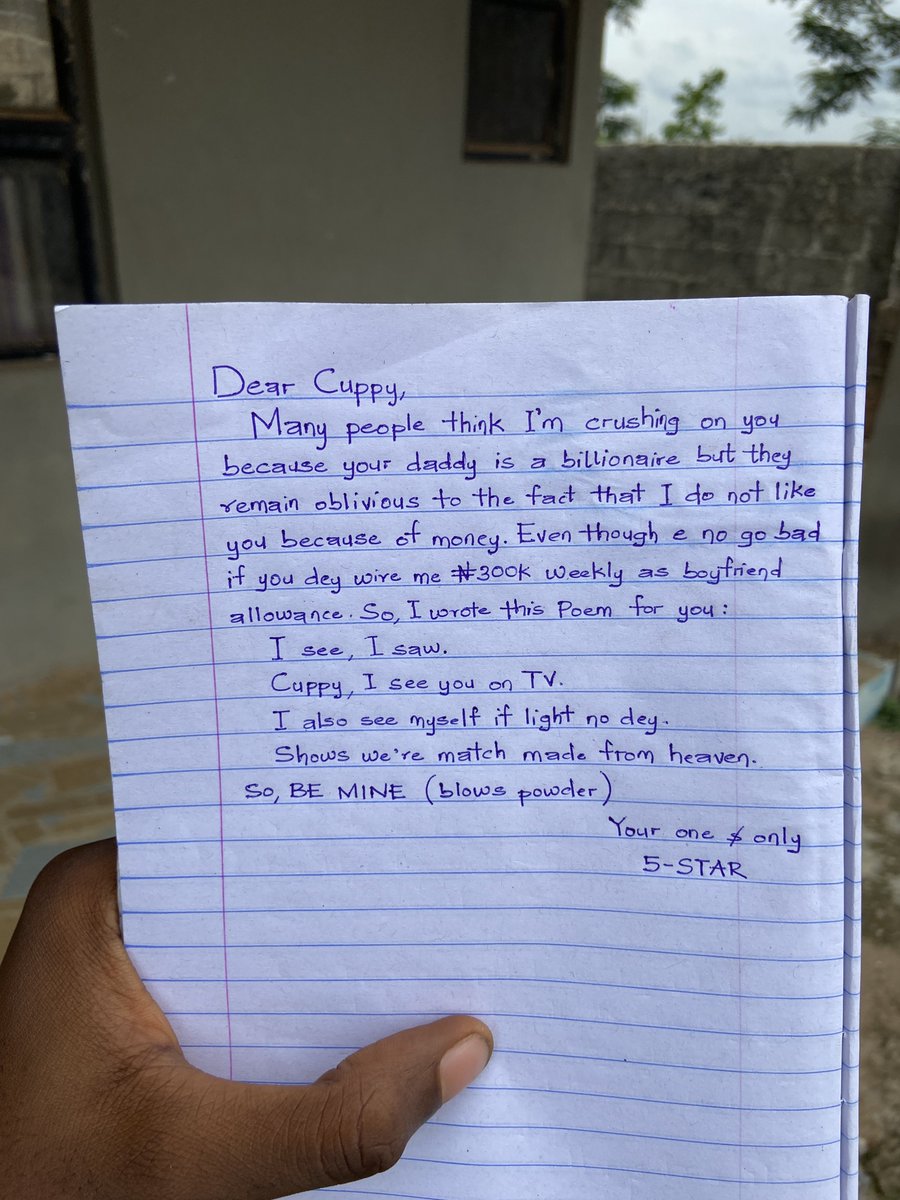 Dear Cuppy,
Many people think I'm crushing on you
because your daddy is a billionaire but they
remain oblivious to the fact that I do not like
you because of money. Even though e no go bad
if you dey wire me ₦300k weekly as boyfriend
allowance. So, I wrote this Poem for you:
I see, I saw.
Cuppy, I see you on TV.
I also see myself if light no dey.
Shows we're match made from heaven.
So, BE MINE (blows powder)
Your one & only
5-STAR